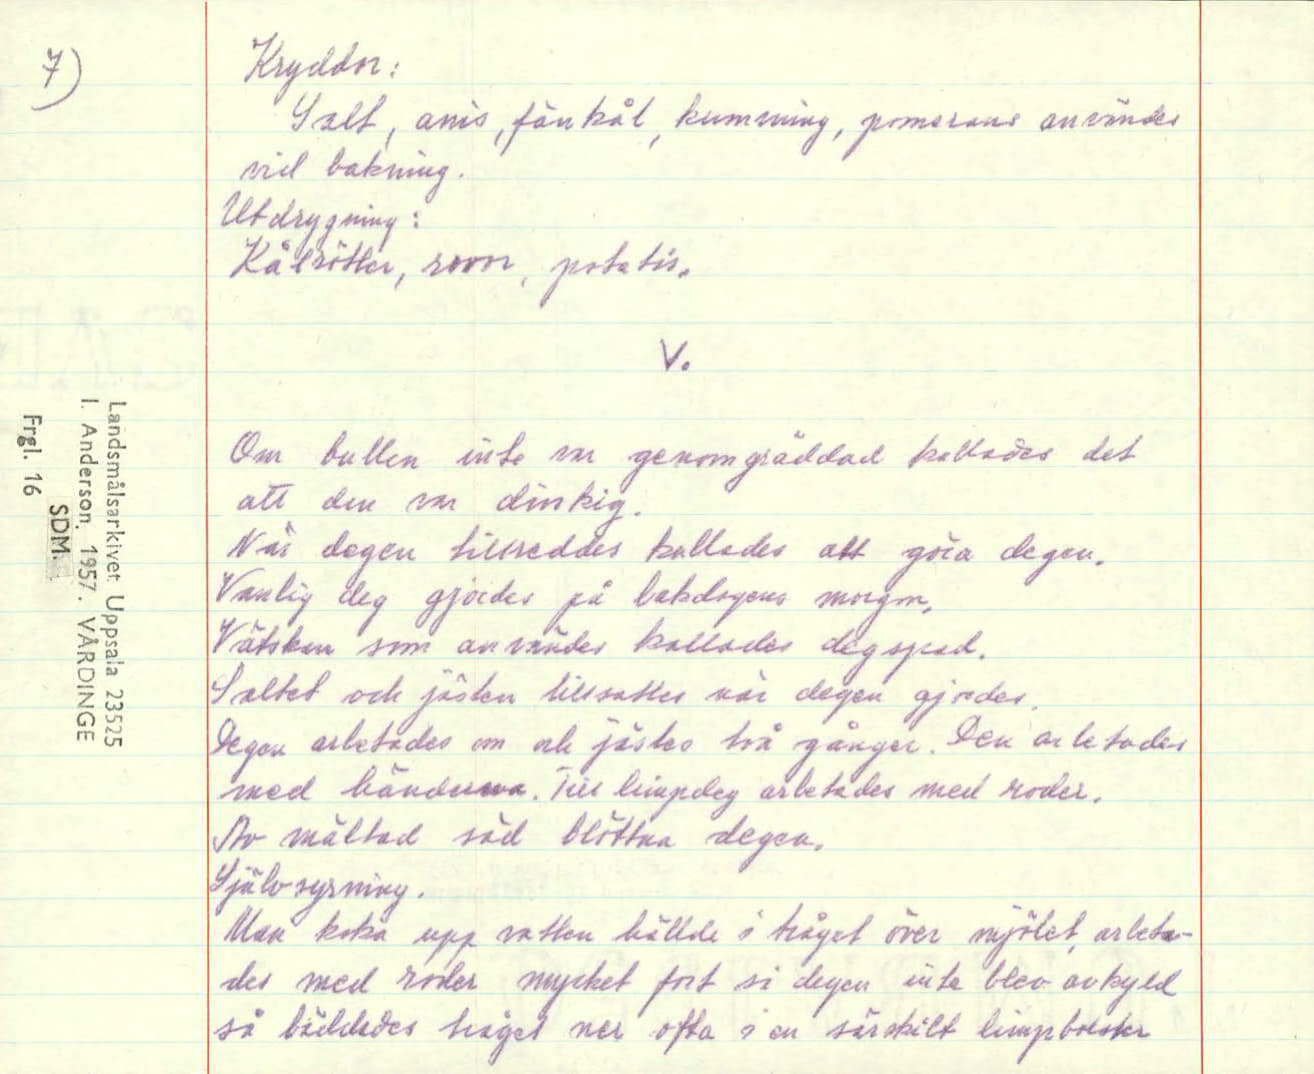 7)
Kryddor:
Salt, anis, fänkål, kumming, pomerans användes
vid bakning.
Utdrygning:
Kålrötter, rovor, potatis.
V.
Om bullen inte var genomgräddad kallades det
att den var dinkig.
När degen tillreddes kallades att göra degen.
Vanlig deg gjordes på bakdagens morgon.
Vätskan som användes kallades degspad.
Saltet och jästen tillsattes när degen gjordes.
Degen arbetades om och jästes två gånger. Den arbetades
med händerna. Till limpdeg arbetades med roder.
Av mältad säd blöttna degen.
Självsyrning.
Man koka upp vatten hällde i tråget över mjölet, arbeta-
des med roder mycket fort så degen inte blev avkyld
så bäddades tråget ner ofta i en särskilt limpbolster
Landsmålsarkivet Uppsala 23525
I. Anderson. 1957. VÅRDINGE
SDM.
Frgl. 16